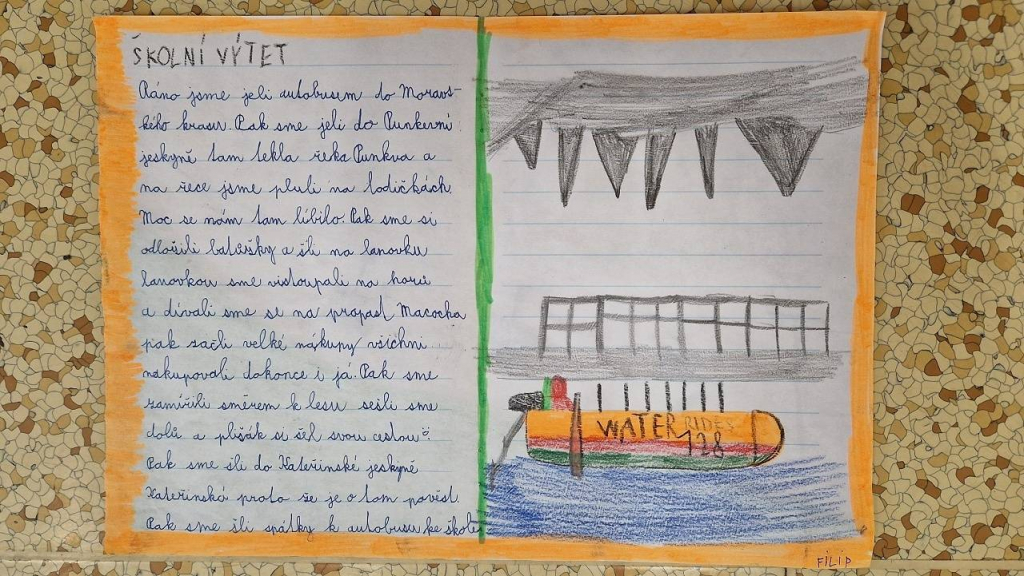 ŠKOLNÍ VÝTET
Ráno jsme jeli autobusem do Moravs-
kého krasu. Pak sme jeli do Punkevní
jeskyně tam tekla řeka Punkva a
na řece jsme pluli na lodičkách.
Moc se nám tam líbilo. Pak sme si
odložili batůšky a šli na lanovku
lanovkou sme vistoupali na horů
a dívali sme se na propast Macocha
pak začli velké nákupy všichni
nakupovali dokonce i já. Pak sme
zamířili směrem k lesu sešli sme
dolů a plišák si šel svou cestou
Pak sme šli do Kateřinské jeskyně
Kateřinská proto že je o tom pověst.
Pak sme šli spátky k autobusu ke škole
WATER RIDES
128
FILIP